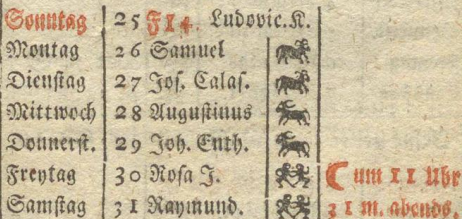 Sonntag 25 F 14. Ludovic.K.
Montag 26 Samuel
Dienstag 27 Jos. Calas.
Mittwoch 28 Augustinus
Donnerst. 29 Joh. Enth.
Freytag 30 Rosa J. um 11 Uhr
Samstag 31 Raymund. 31 m. abends.